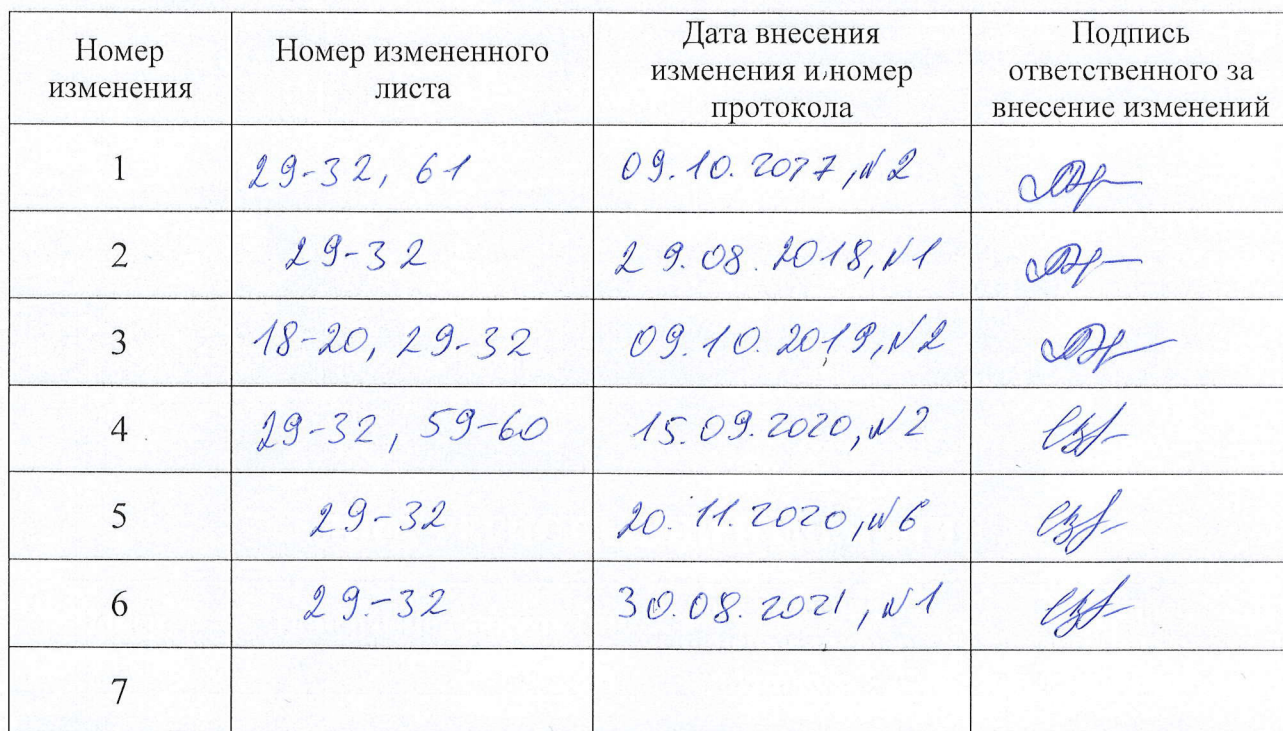 Номер изменения | Номер измененного листа | Дата внесения изменения и номер протокола | Подпись ответственного за внесение изменений
1 | 29-32, 61 | 09.10.2017, №2
2 | 29-32 | 29.08.2018, №1
3 | 18-20, 29-32 | 09.10.2019, №2
4 | 29-32, 59-60 | 15.09.2020, №2
5 | 29-32 | 20.11.2020, №6
6 | 29-32 | 30.08.2021, №1
7